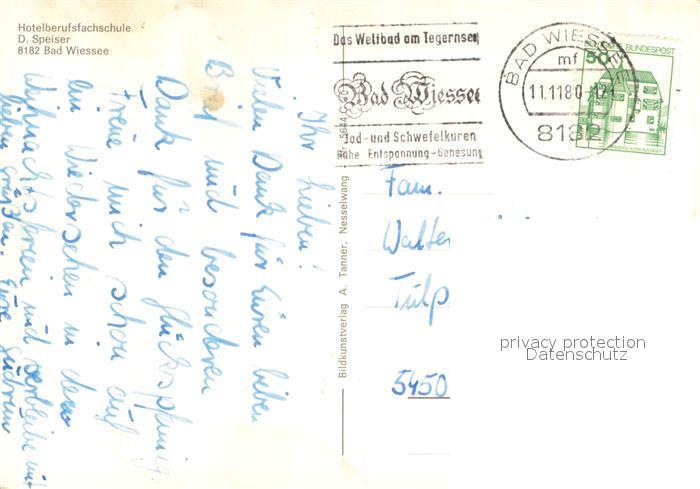 Hotelberufsfachschule
D. Speiser
8182 Bad Wiessee
Das Weltbad am Tegernsee
Bad Wiessee
Jod- und Schwefelkuren
Nahe Entspannung - Genesung
BAD WIESSEE
mf
11.11.80
8182
DEUTSCHE BUNDESPOST
50
Ihr Lieben!
Vielen Dank für Euren lieben
Brief und besonderen
Dank für den Glückspfennig.
Freue mich schon auf
ein Wiedersehen in den
Weihnachtsferien und verbleibe mit
lieben Grüssen, Eure Gudrun
Bildkunstverlag A. Tanner, Nesselwang
Nr. 5644
Fam.
Walter
Tulp
5450
privacy protection
Datenschutz